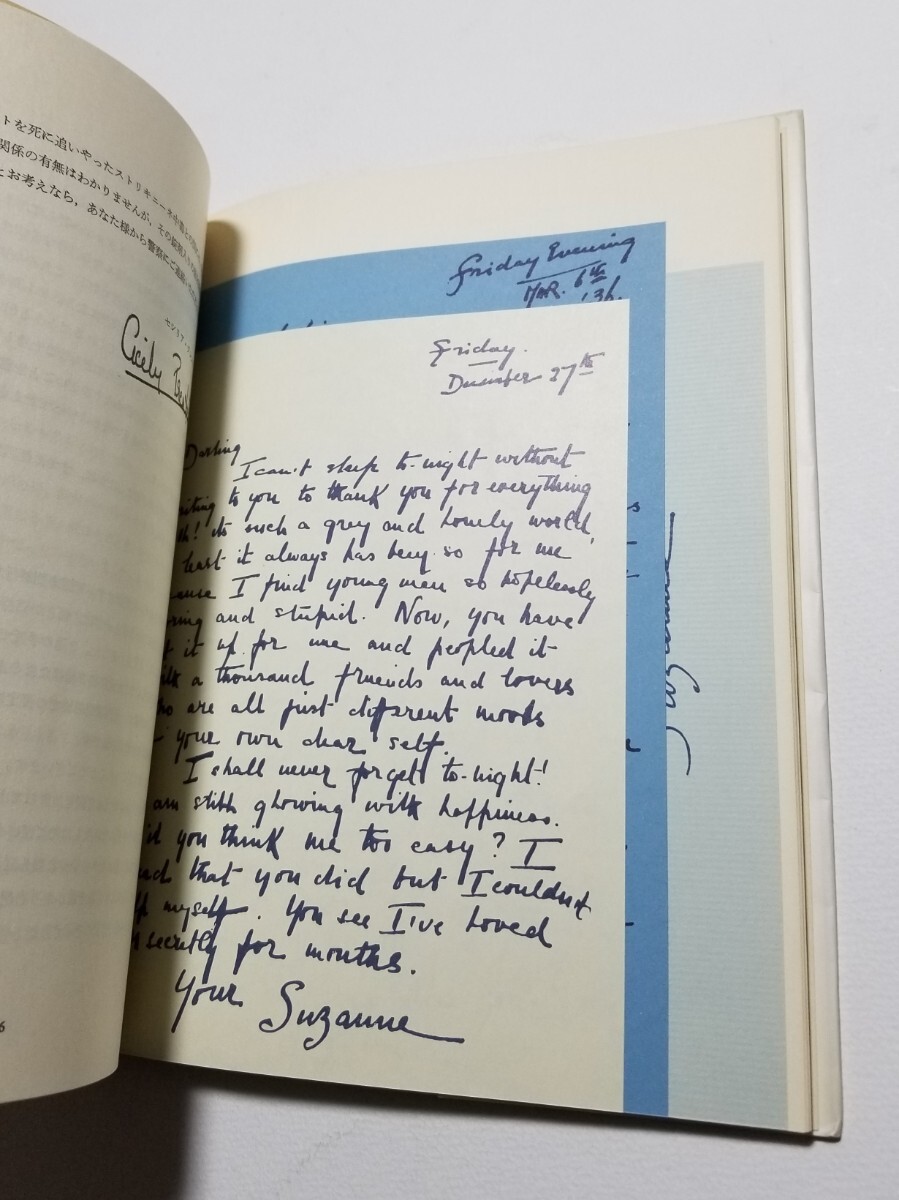 トを死に追いやったストリキニーネ中毒
関係の有無はわかりませんが、その
とお考えなら、あなた様から警察にご連絡
セシリア・
Cicily
6
Friday Evening
MAR. 6th
36.
Friday.
December 27th
Darling
I can't sleep to-night without
iting to you to thank you for everything
h! its such a grey and lonely world,
least it always has been so for me
cause I find young men so hopelessly
oring and stupid. Now, you have
t it up for me and peopled it
ith a thousand friends and lovers
ho are all just different moods
your own dear self.
I shall never forget to-night!
am still glowing with happiness.
id you think me too easy? I
nd that you did but I couldn't
lp myself. You see I've loved
secretly for months.
Your Suzanne
Suzanne